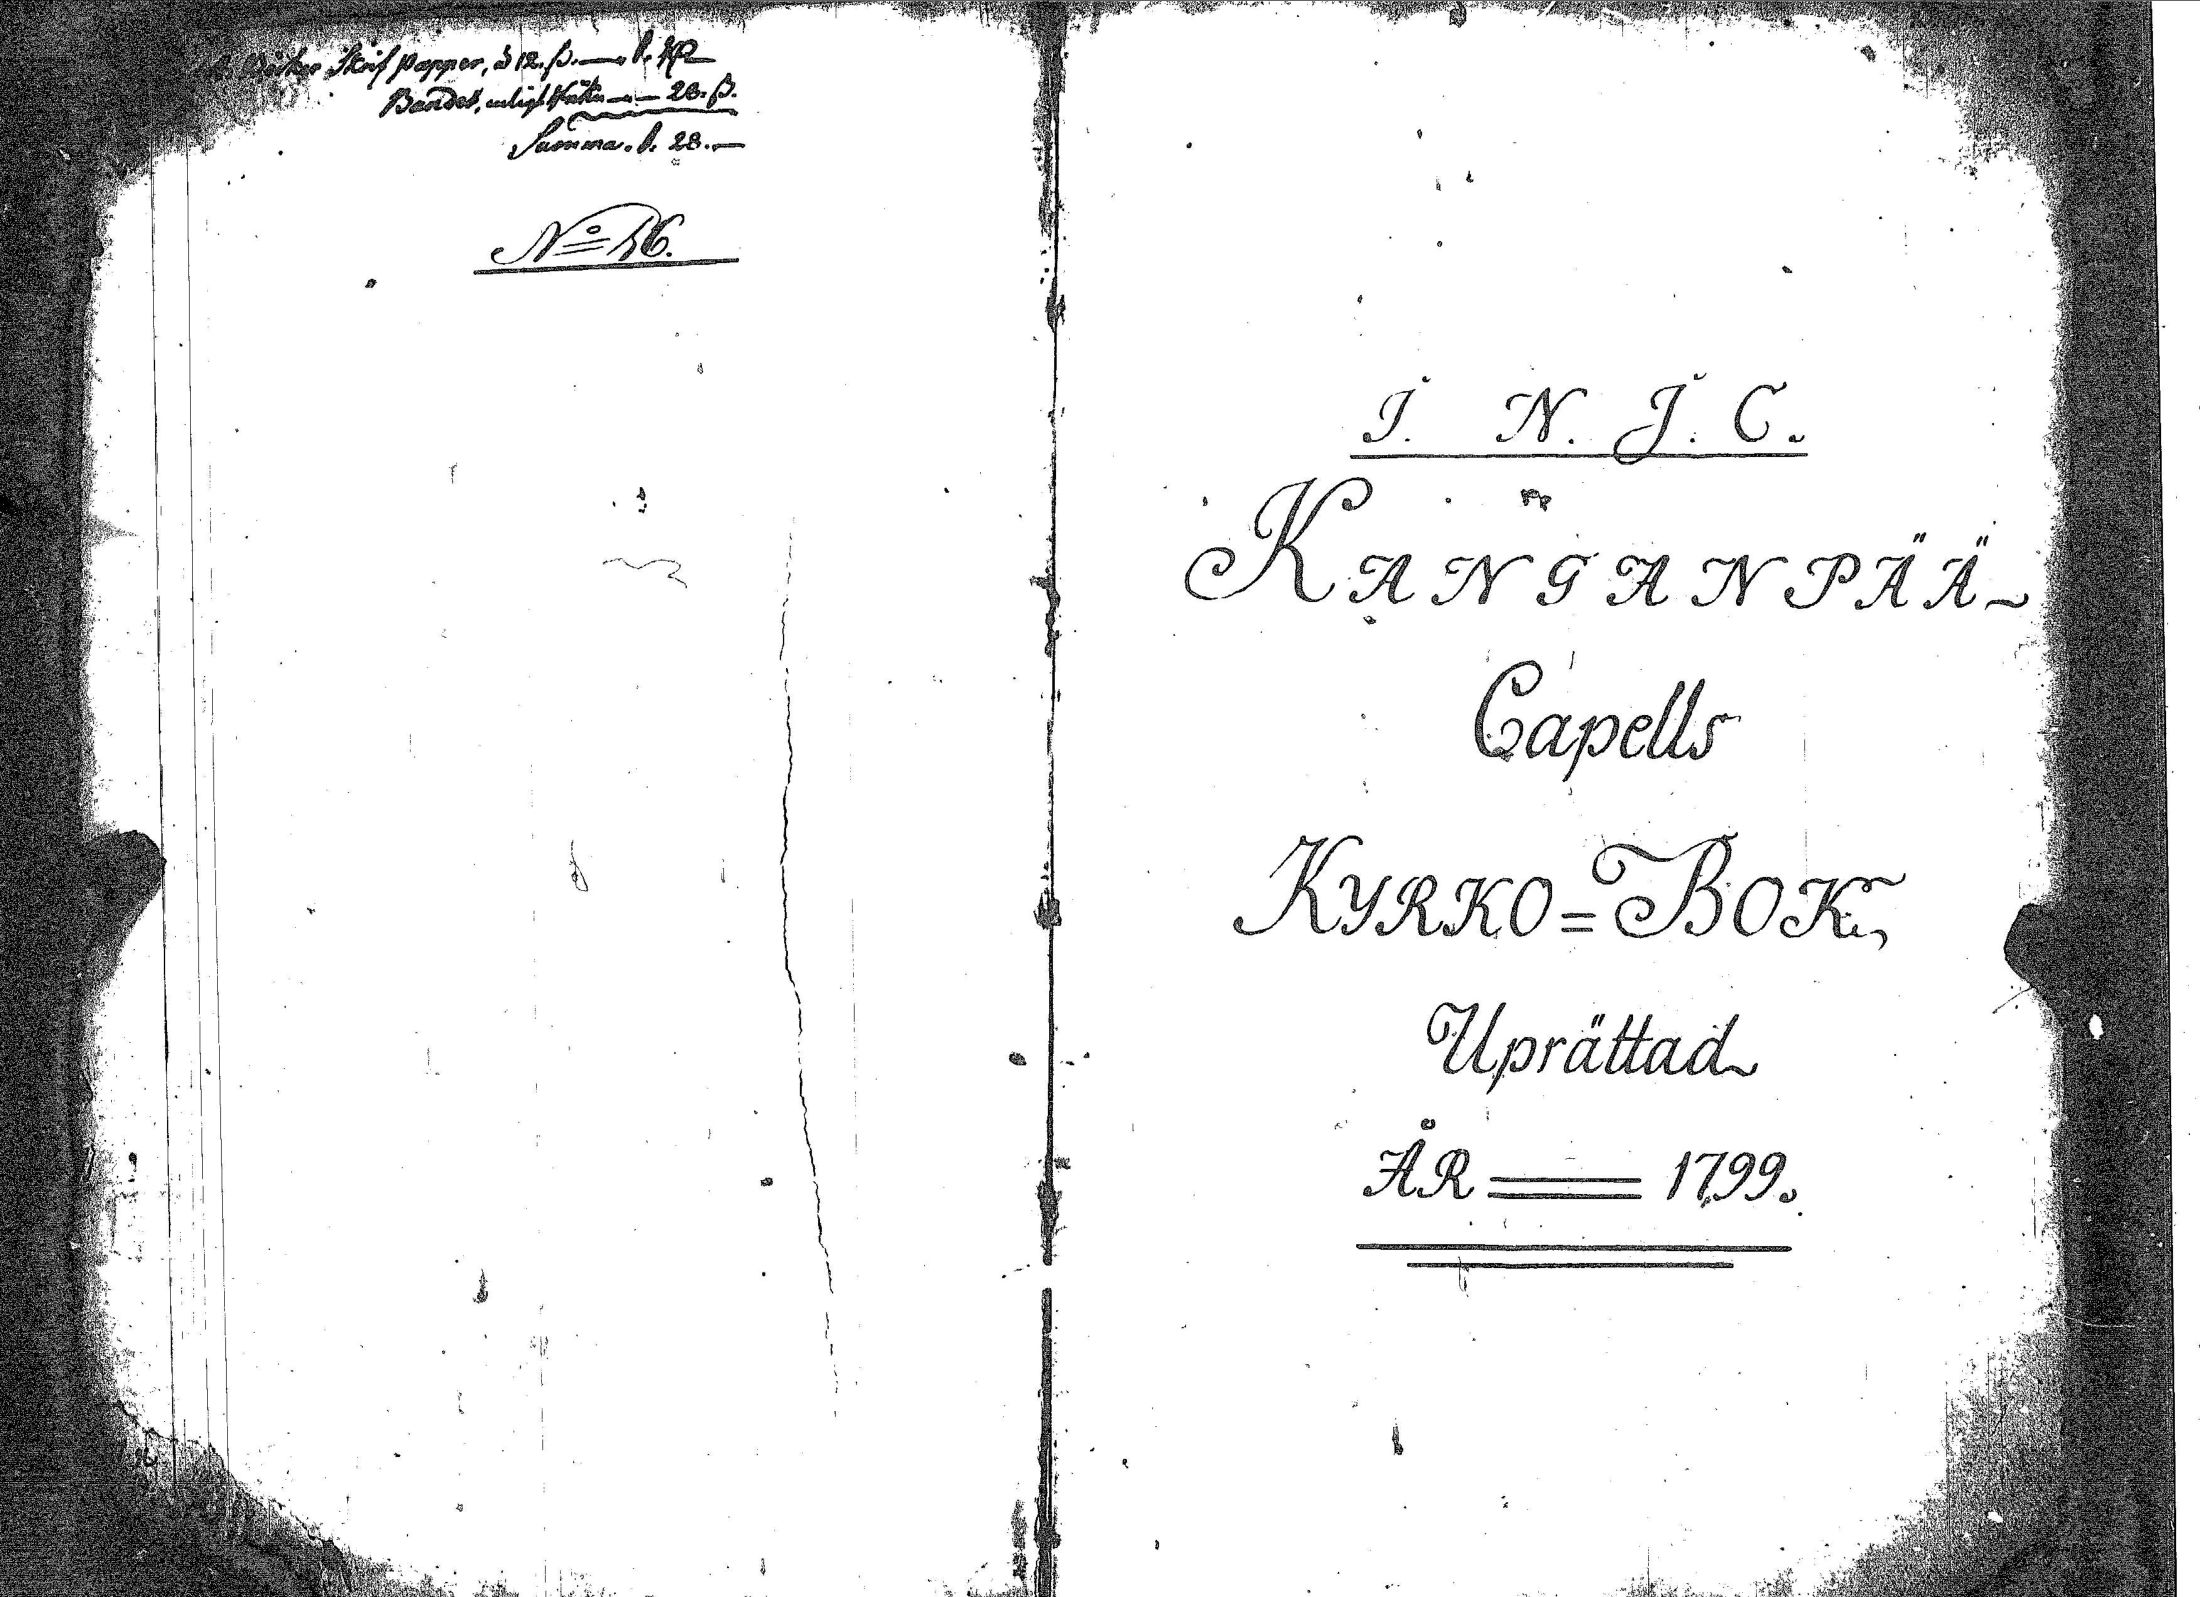 Böcker Skrif papper, à 12. ß.
Bandet, enligt 28. ß.
Summa. 28.
No 46.
I. N. J. C.
KANGANPÄÄ
Capells
KYRKO=BOK,
Uprättad
ÅR 1799.